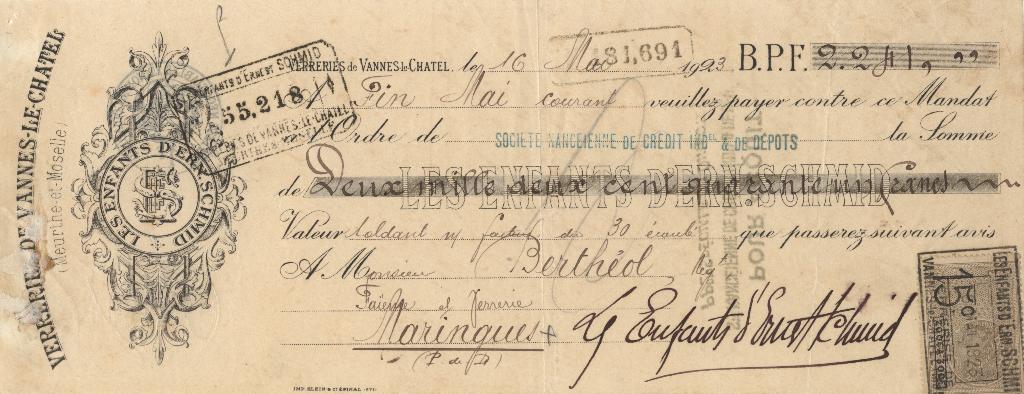 VERRERIE DE VANNES-LE-CHATEL
(Meurthe-et-Moselle)
LES ENFANTS D'ERN. SCHMID
ENFANTS D'ERNEST SCHMID
55,218
DE VANNES-LE-CHATEL
VERRERIES de VANNES-le-CHATEL, le 16 Mai 1923 B.P.F. 2.241,"
81,691
A Fin Mai courant veuillez payer contre ce Mandat
Ordre de SOCIÉTÉ NANCÉIENNE DE CRÉDIT INDEL & DE DÉPOTS la Somme
de Deux mille deux cent quarante un francs
LES ENFANTS D'ERN. SCHMID
Valeur soldant n/ facture du 30 écoulé que passerez suivant avis
A Monsieur Berthéol
Faïence et Verrerie
Maringues
(P. de D.)
Les Enfants d'Ernest Schmid
POUR ACQUIT
LES ENFANTS D'Ern SCHMID
15
MAI 1923
IMP. KLEIN & Cie ÉPINAL